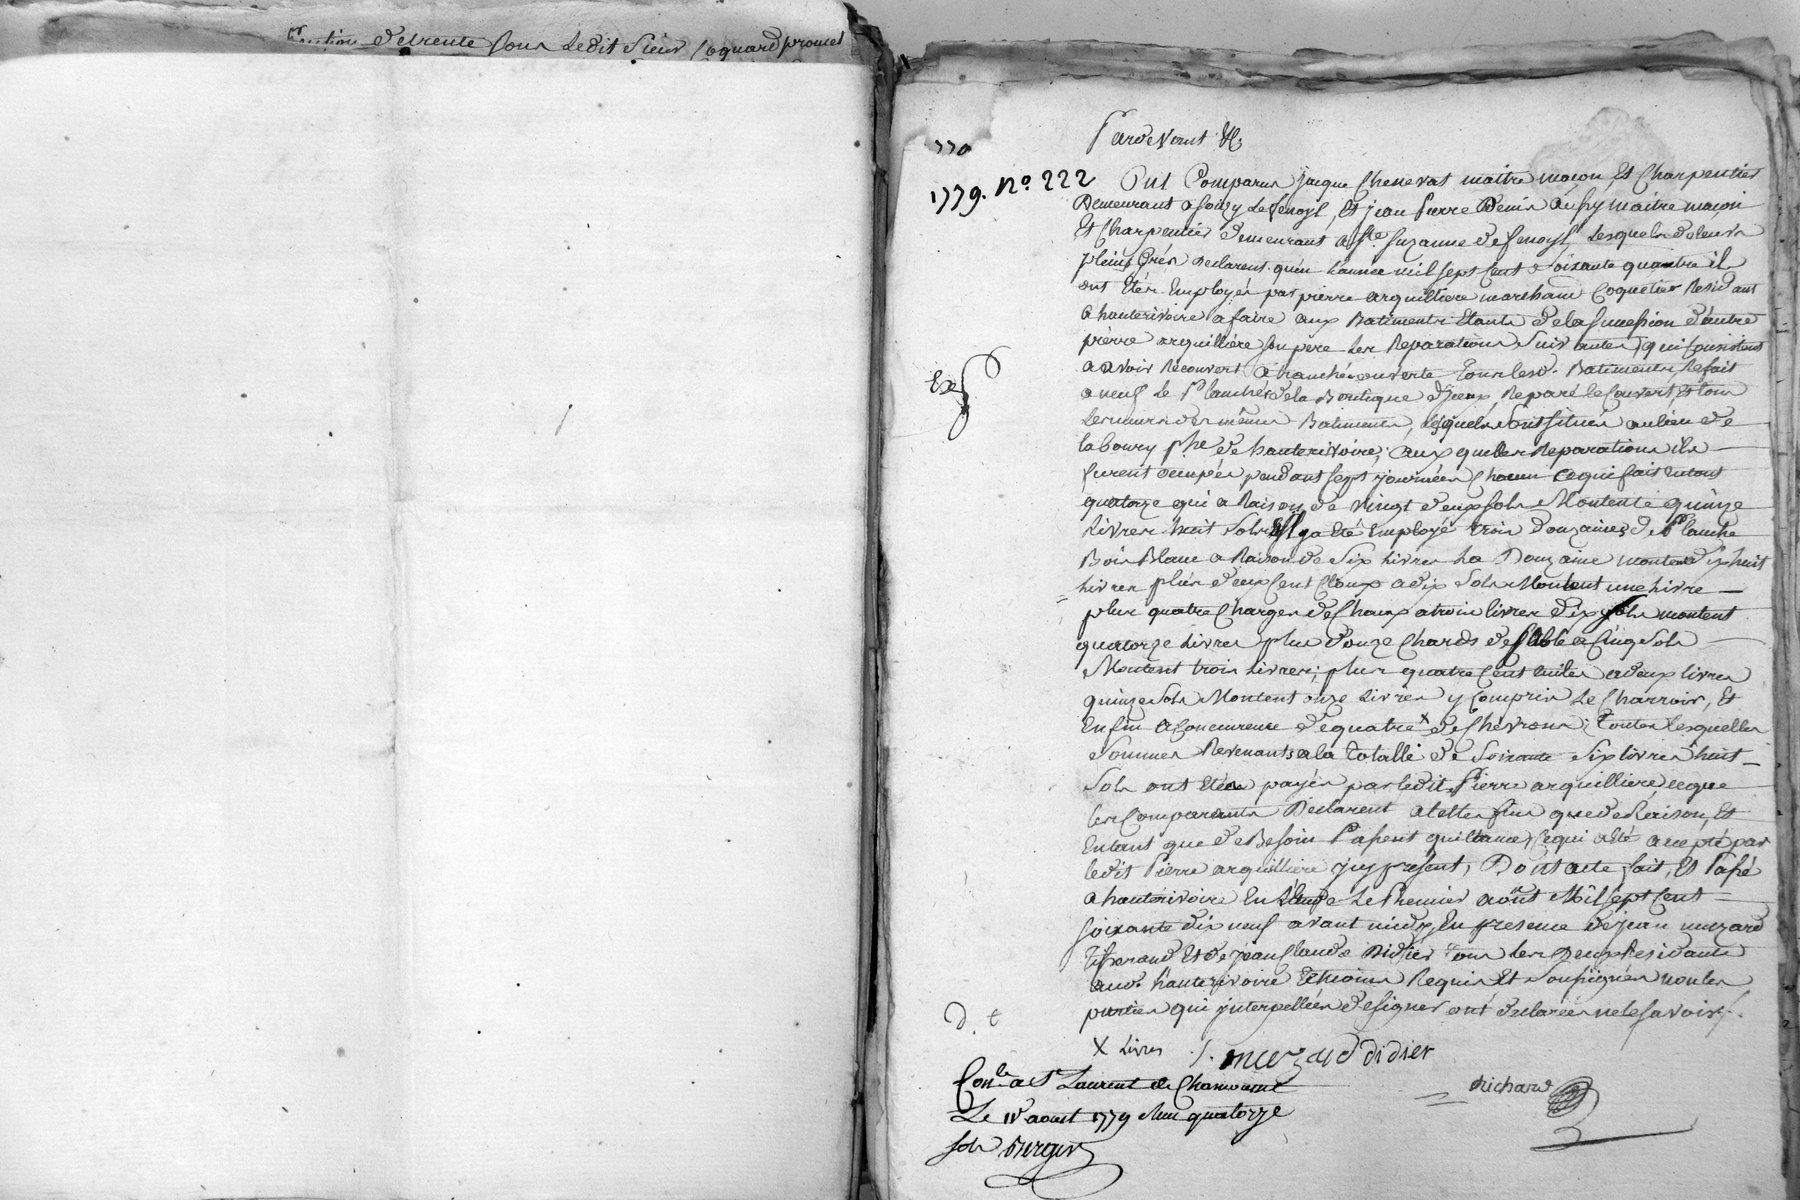 de trente sous ledit sieur Coquard promet
Pardevant &c.
770
1779. No. 222
Ont Comparus jacque Chenevat maitre maçon Et Charpentier
Demeurant a soucy Le fenoyl, Et jean Pierre Denis Aussy maitre maçon
Et Charpentier demeurant a Ste. Suzanne de fenoyl Lesquels de leurs
pleins Grés declarent qu'en L'année mil sept cent Soixante quatre ils
ont Etés Employés par pierre arquilliere marchand Coquetier Residant
a hauterivoire a faire aux Batiments Etants de la succession d'autre
pierre arquilliere son pere Les Reparations suivantes, qui Consistent
a avoir Recouvert a tranchée ouverte tous lesd. Batiments, Refait
a neuf Le Planché de la Boutique d'jceux, Reparé le Couvert Et tous
Les murs des mêmes Batiments, lesquels sont situés au lieu de
la boury psse de hauterivoire, aux quelles Reparations ils
furent occupés pendant sept journées Chacun ce qui fait Entout
quatorze qui a Raison de Vingt deux sols Montent a quinze
Livres huit sols Il y a Eté Employé trois Douzaines de Planche
Bois Blanc a Raison de Six Livres La Douzaine montent dix huit
Livres plus deux Cent Cloux a dix Sols Montent une Livre
plus quatre Charges de Chaux a trois livres dix sols montent
quatorze Livres plus Douze Chards de Sable a Cinq Sols
Montent trois Livres; plus quatre Cent tuiles a deux livres
quinze Sols Montent onze Livres y Compris Le Charroir, Et
Enfin a Concurrence de quatre x de Chevrons; toutes Lesquelles
Sommes Revenants a la totalle de Soixante Six livres huit
Sols ont Etés payés par ledit Pierre arquilliere ce que
les Comparants Declarent a telles fins que de Raison, Et
Entant que de Besoin Passent quittance, Ce qui a Eté accepté par
ledit Pierre arquilliere jcy present, Dont acte fait, Et Passé
a hauterivoire En L'Etude Le Premier aoùt Mil sept Cent
soixante dix neuf avant midy En presence de jean muzard
tisserand Et de jean Claude Didier tous les Deux Residants
aud. hauterivoire temoins Requis Et Soussignés non les
parties qui jnterpellées de signer ont declarées ne le savoir.
d. t
X Livres
J. muzard didier
richard
Conlé a St Laurent de Chamousset
Le 11 aoust 1779 Reçu quatorze
sols Berger